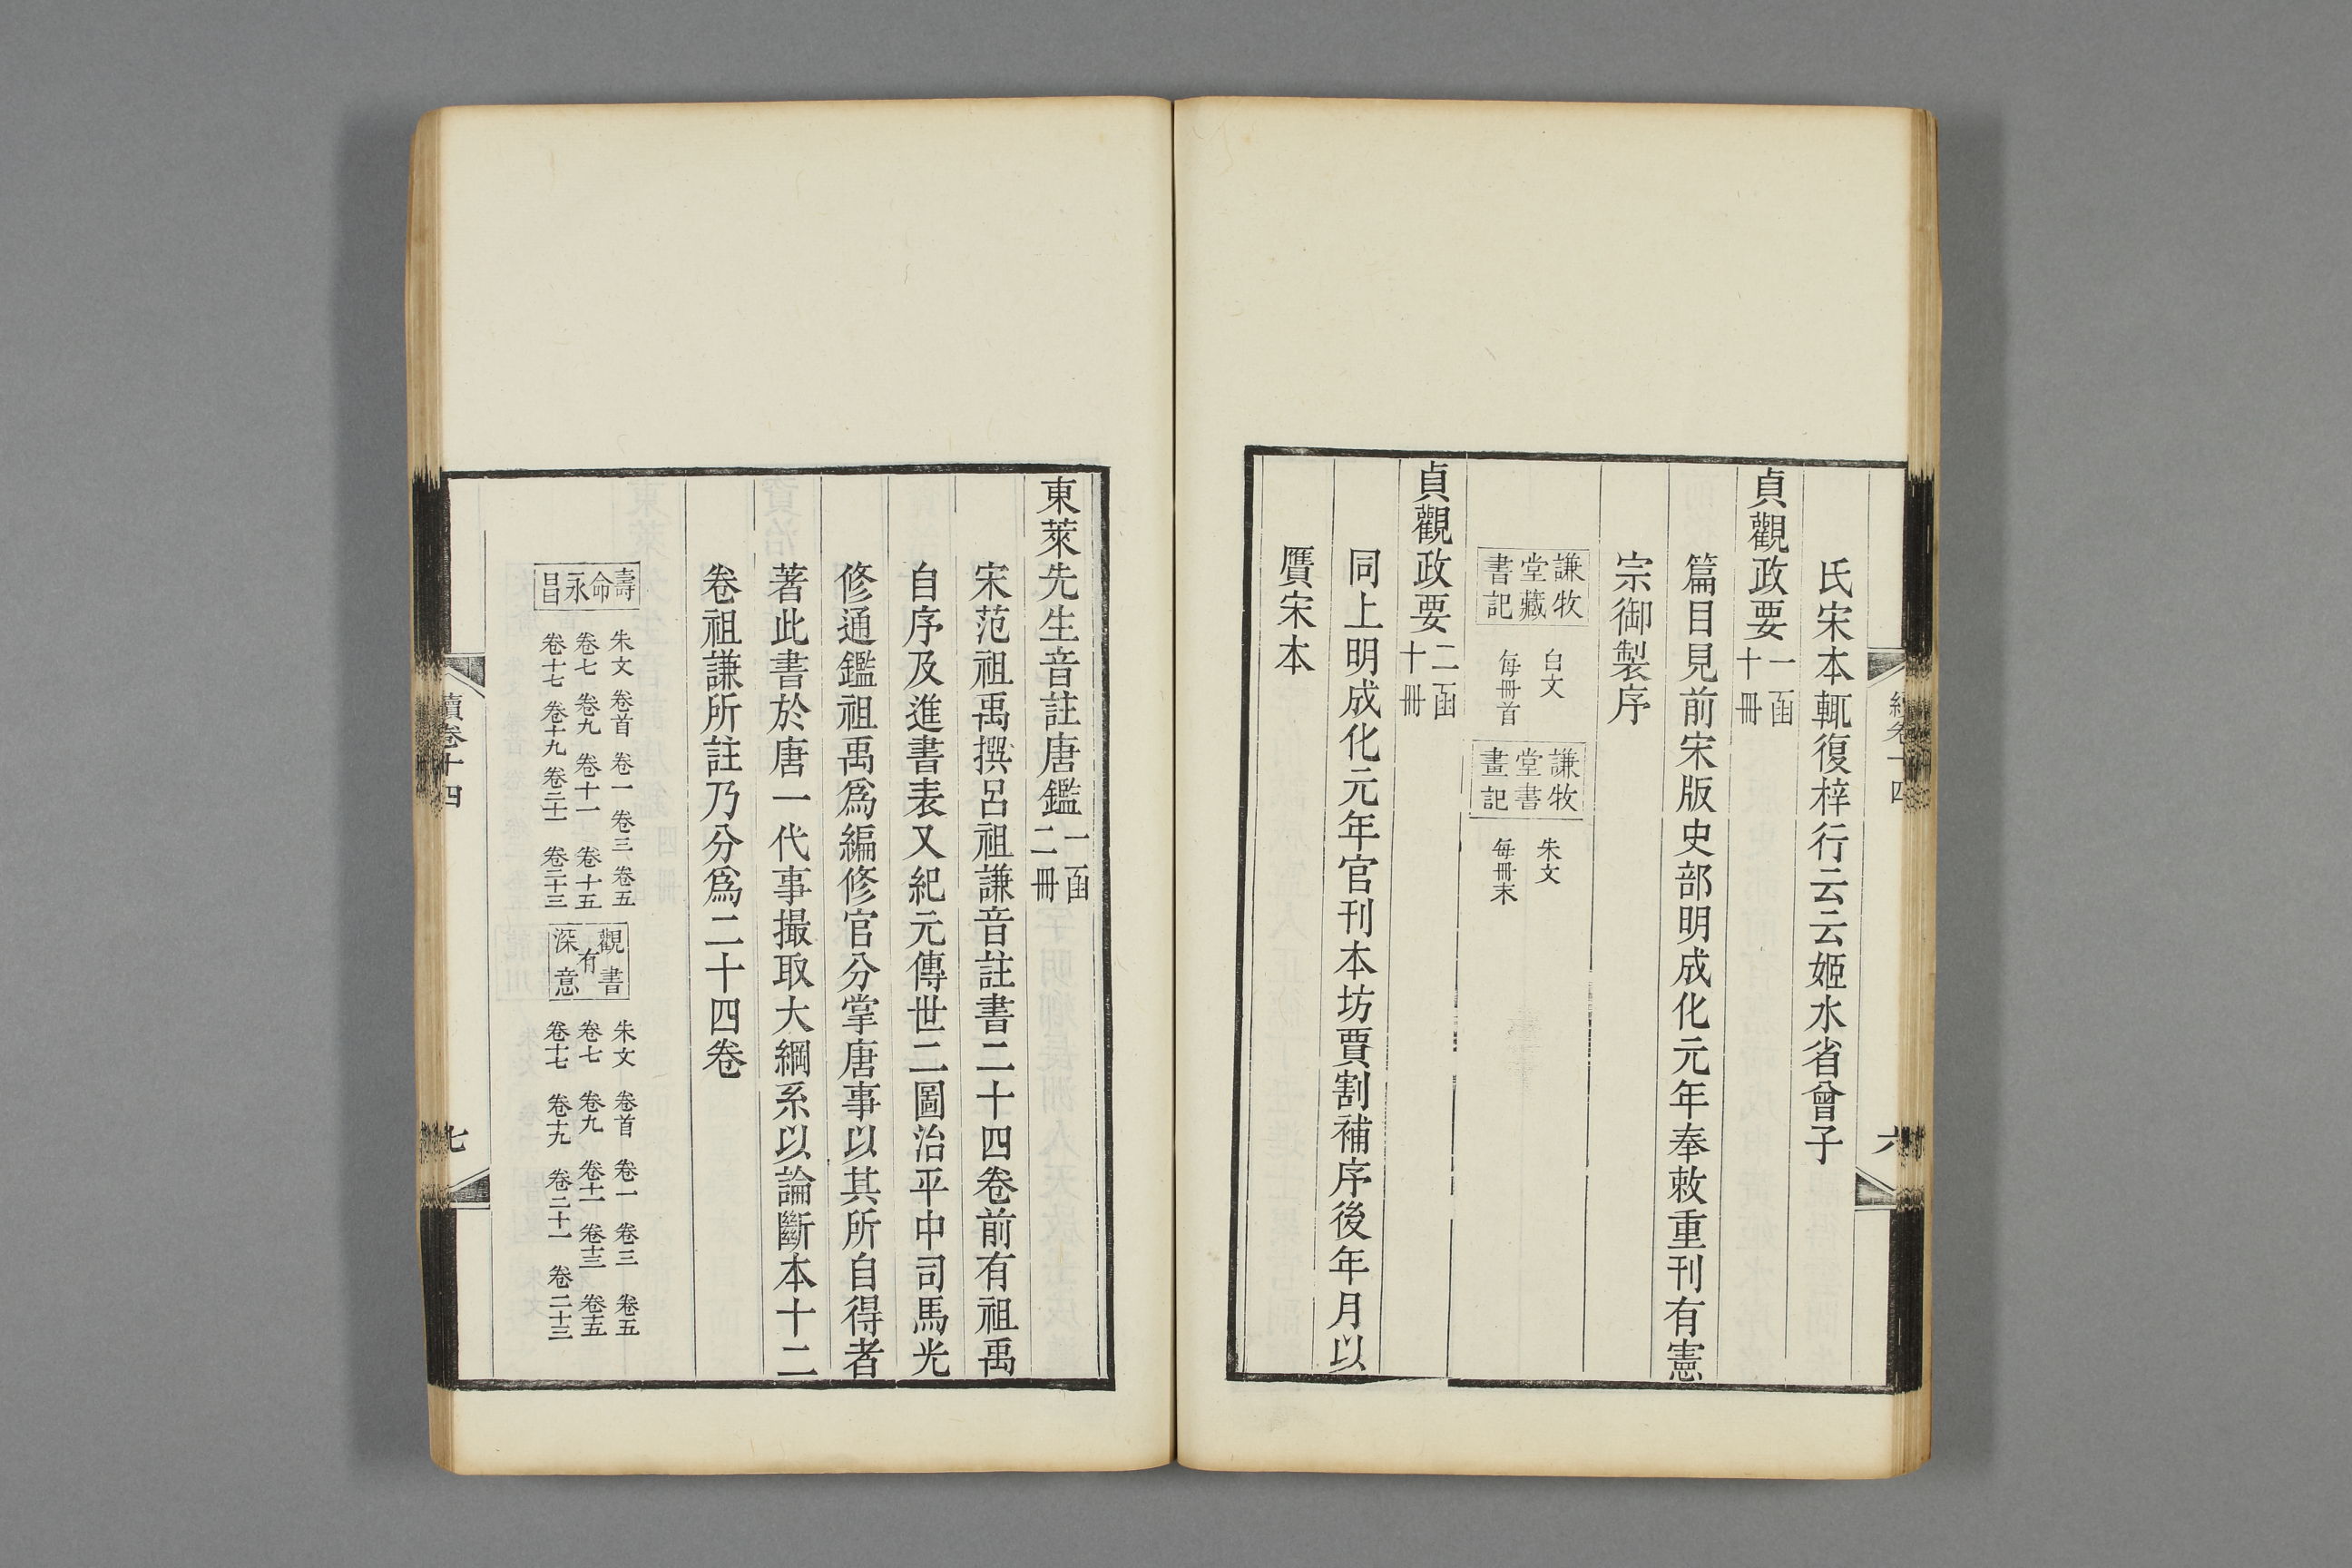 氏宋本輒復梓行云云姬水省曾子
貞觀政要一函十冊
篇目見前宋版史部明成化元年奉敕重刊有憲
宗御製序
謙牧堂藏書記 白文 每冊首 謙牧堂書畫記 朱文 每冊末
貞觀政要二函十冊
同上明成化元年官刊本坊賈割補序後年月以
贋宋本
六
東萊先生音註唐鑑一函二冊
宋范祖禹撰呂祖謙音註書二十四卷前有祖禹
自序及進書表又紀元傳世二圖治平中司馬光
修通鑑祖禹爲編修官分掌唐事以其所自得者
著此書於唐一代事撮取大綱系以論斷本十二
卷祖謙所註乃分爲二十四卷
壽命永昌 朱文 卷首 卷一 卷三 卷五 卷七 卷九 卷十一 卷十五 卷十七 卷十九 卷二十一 卷二十三 觀書有深意 朱文 卷首 卷一 卷三 卷五 卷七 卷九 卷十一 卷十三 卷十五 卷十七 卷十九 卷二十一 卷二十三
續卷十四
七